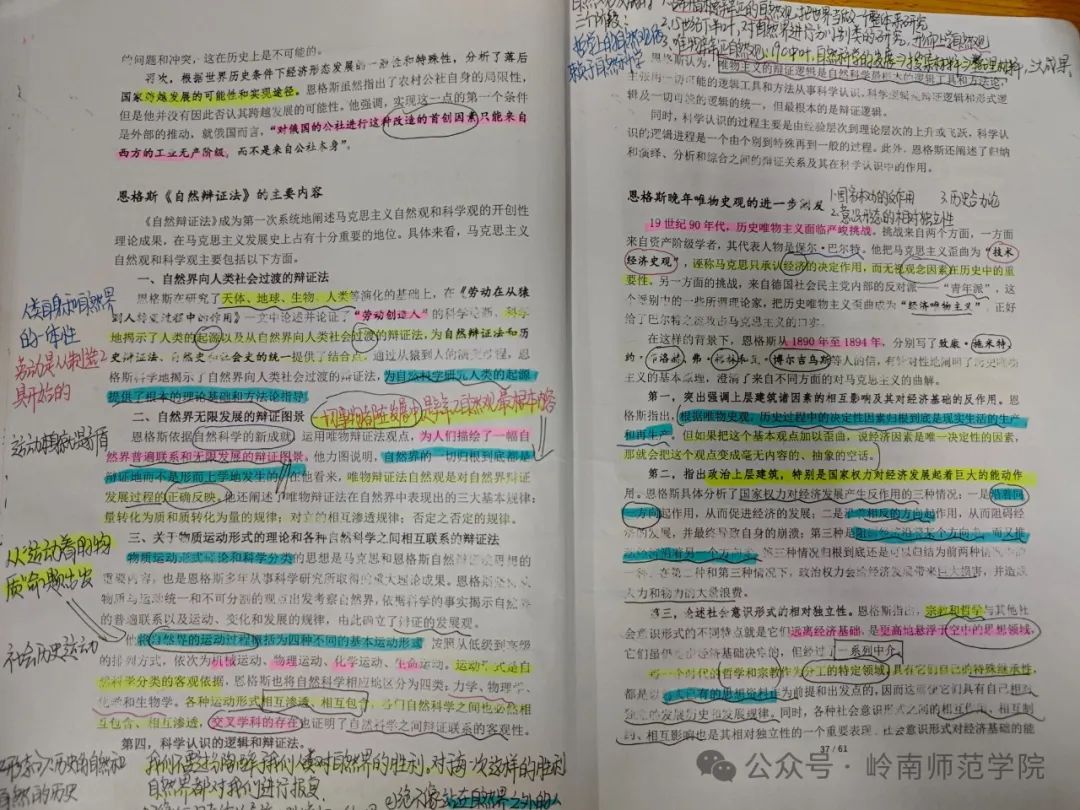 的问题和冲突，这在历史上是不可能的。
再次，根据世界历史条件下经济形态发展的一般性和特殊性，分析了落后
国家跨越发展的可能性和实现途径。恩格斯虽然指出了农村公社自身的局限性，
但是他并没有因此否认其跨越发展的可能性。他强调，实现这一点的第一个条件
是外部的推动，就俄国而言，“对俄国的公社进行这种改造的首创因素只能来自
西方的工业无产阶级，而不是来自公社本身”。
恩格斯《自然辩证法》的主要内容
《自然辩证法》成为第一次系统地阐述马克思主义自然观和科学观的开创性
理论成果，在马克思主义发展史上占有十分重要的地位。具体来看，马克思主义
自然观和科学观主要包括以下方面。
一、自然界向人类社会过渡的辩证法
恩格斯在研究了天体、地球、生物、人类等演化的基础上，在《劳动在从猿
到人转变过程中的作用》一文中论述并论证了“劳动创造人”的科学论断，科学
地揭示了人类的起源以及从自然界向人类社会过渡的辩证法，为自然辩证法和历
史辩证法、自然史和社会史的统一提供了结合点。通过从猿到人的演变过程，恩
格斯科学地揭示了自然界向人类社会过渡的辩证法，为自然科学研究人类的起源
提供了根本的理论基础和方法论指导。
人类自身和自然界
的一体性
劳动是从制造工
具开始的
二、自然界无限发展的辩证图景
恩格斯依据自然科学的新成就，运用唯物辩证法观点，为人们描绘了一幅自
然界普遍联系和无限发展的辩证图景。他力图说明，自然界的一切归根到底都是
辩证地而不是形而上学地发生的。在他看来，唯物辩证法自然观是对自然界辩证
发展过程的正确反映。他还阐述了唯物辩证法在自然界中表现出的三大基本规律：
量转化为质和质转化为量的规律；对立的相互渗透规律；否定之否定的规律。
三、关于物质运动形式的理论和各种自然科学之间相互联系的辩证法
物质运动形式理论和科学分类的思想是马克思和恩格斯自然辩证法思想的
重要内容，也是恩格斯多年从事科学研究所取得的重大理论成果。恩格斯坚持从
物质与运动统一和不可分割的观点出发考察自然界，依据科学的事实揭示自然界
的普遍联系以及运动、变化和发展的规律，由此确立了辩证的发展观。
他将自然界的运动过程概括为四种不同的基本运动形式，按照从低级到高级
的排列方式，依次为机械运动、物理运动、化学运动、生命运动。运动形式是自
然科学分类的客观依据，恩格斯也将自然科学相应地区分为四类：力学、物理学、
化学和生物学。各种运动形式相互渗透、相互包含，各门自然科学之间也必然相
互包含、相互渗透，交叉学科的存在也证明了自然科学之间辩证联系的客观性。
第四，科学认识的逻辑和辩证法。
社会历史运动
我们不要过分陶醉于我们人类对自然界的胜利。对于每一次这样的胜利
自然界都对我们进行报复
恩格斯认为，唯物主义的辩证逻辑是自然科学最恰大的逻辑工具和方法论，
主张将一切可能的逻辑工具和方法从事科学认识，科学逻辑是辩证逻辑和形式逻
辑及一切可能的逻辑的统一，但最根本的是辩证逻辑。
同时，科学认识的过程主要是由经验层次到理论层次的上升或飞跃，科学认
识的逻辑进程是一个由个别到特殊再到一般的过程。此外，恩格斯还阐述了归纳
和演绎、分析和综合之间的辩证关系及其在科学认识中的作用。
恩格斯晚年唯物史观的进一步阐发
1.国家权力的反作用
3.历史合力论
2.意识形态的相对独立性
19 世纪 90 年代，历史唯物主义面临严峻挑战。挑战来自两个方面，一方面
来自资产阶级学者，其代表人物是保尔·巴尔特。他把马克思主义歪曲为“技术
经济史观”，诬称马克思只承认经济的决定作用，而无视观念因素在历史中的重
要性。另一方面的挑战，来自德国社会民主党内部的反对派——“青年派”，这
个派别中的一些所谓理论家，把历史唯物主义歪曲成为“经济唯物主义”，正好
给了巴尔特之流攻击马克思主义的口实。
在这样的背景下，恩格斯从 1890 年至 1894 年，分别写了致康·施米特、
约·布洛赫、弗·梅林和瓦·博尔吉乌斯等人的信，有针对性地阐明了历史唯物
主义的基本原理，澄清了来自不同方面的对马克思主义的曲解。
第一，突出强调上层建筑诸因素的相互影响及其对经济基础的反作用。恩格
斯指出，根据唯物史观，历史过程中的决定性因素归根到底是现实生活的生产
和再生产，但如果把这个基本观点加以歪曲，说经济因素是唯一决定性的因素，
那就会把这个观点变成毫无内容的、抽象的空话。
第二，指出政治上层建筑，特别是国家权力对经济发展起着巨大的能动作
用。恩格斯具体分析了国家权力对经济发展产生反作用的三种情况：一是沿着同
一方向起作用，从而促进经济的发展；二是沿着相反的方向起作用，从而阻碍经
济的发展，并最终导致自身的崩溃；第三种是阻止经济沿着某个方向走，而又推
动它沿着另一个方向走。第三种情况归根到底还是可以归结为前两种情况中的
一种。在第二种和第三种情况下，政治权力会给经济发展带来巨大损害，并造成
人力和物力的大量浪费。
第三，论述社会意识形式的相对独立性。恩格斯指出，宗教和哲学与其他社
会意识形式的不同特点就是它们远离经济基础，是更高地悬浮于空中的思想领域，
它们虽然也由经济基础决定的，但经过了一系列中介。
每一个时代的哲学和宗教作为分工的特定领域，具有它们自己的特殊继承性，
都是以前人已有的思想资料作为前提和出发点的，因而这就使它们具有自己相对
独立的发展历史和发展规律。同时，各种社会意识形式之间的相互作用、相互制
约、相互影响也是其相对独立性的一个重要表现。社会意识形式对经济基础的能
37 / 61
公众号·岭南师范学院